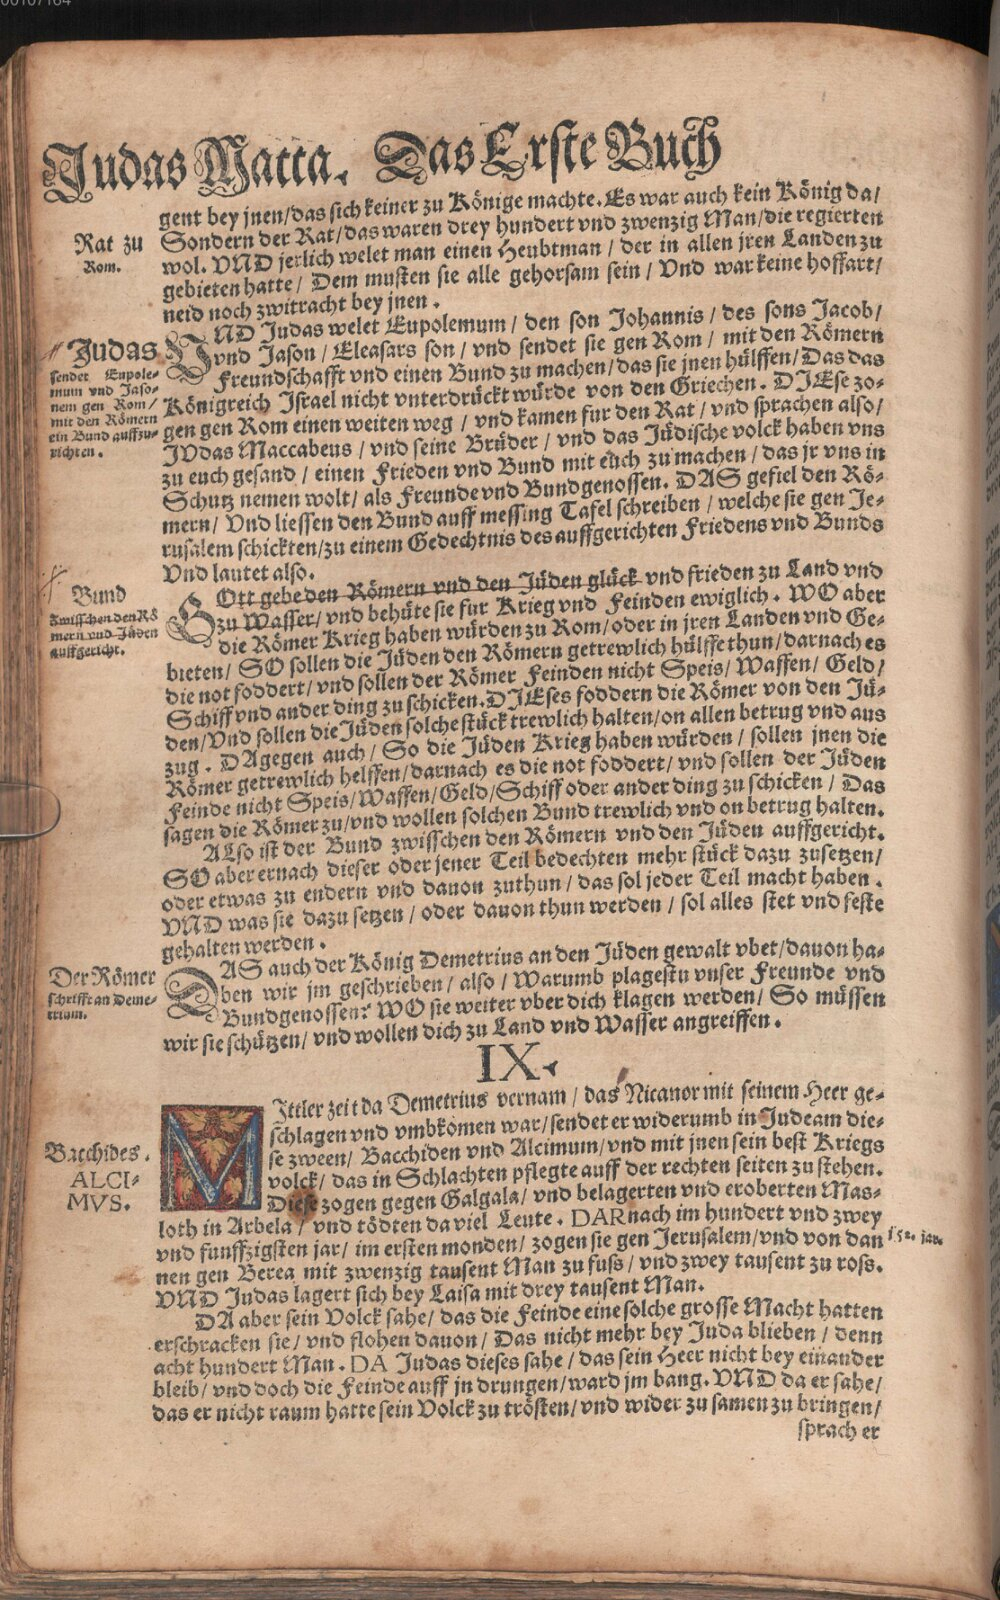 00107164
Judas Matta. Das Erste Buch
gent bey jnen/das sich keiner zu Könige machte. Es war auch kein König da/
Rat zu
Rom.
Sondern der Rat/das waren drey hundert vnd zwenzig Man/die regierten
wol. VND jerlich welet man einen Heubtman / der in allen jren Landen zu
gebieten hatte / Dem musten sie alle gehorsam sein / Vnd war keine hoffart/
neid noch zwitracht bey jnen.
Judas
sendet Eupole-
mum vnd Jaso-
nem gen Rom/
mit den Römern
ein Bund auffzu-
richten.
VND Judas welet Eupolemum / den son Johannis / des sons Jacob/
vnd Jason / Eleasars son / vnd sendet sie gen Rom / mit den Römern
Freundschafft vnd einen Bund zu machen/das sie jnen hülffen/Das das
Königreich Israel nicht vnterdrückt würde von den Griechen. DJEse zo-
gen gen Rom einen weiten weg / vnd kamen fur den Rat / vnd sprachen also/
JVdas Maccabeus / vnd seine Brüder / vnd das Jüdische volck haben vns
zu euch gesand / einen Frieden vnd Bund mit euch zu machen / das jr vns in
Schutz nemen wolt/ als Freunde vnd Bundgenossen. DAS gefiel den Rö-
mern/ Vnd liessen den Bund auff messing Tafel schreiben / welche sie gen Je-
rusalem schickten/zu einem Gedechtnis des auffgerichten Friedens vnd Bunds
Vnd lautet also.
Bund
Zwisschen den Rö
mern vnd Jüden
auffgericht.
GOtt gebe den Römern vnd den Jüden glück vnd frieden zu Land vnd
zu Wasser/ vnd behüte sie fur Krieg vnd Feinden ewiglich. WO aber
die Römer Krieg haben würden zu Rom/oder in jren Landen vnd Ge-
bieten/ SO sollen die Jüden den Römern getrewlich hülffe thun/darnach es
die not foddert/ vnd sollen der Römer Feinden nicht Speis/ Waffen/ Geld/
Schiff vnd ander ding zu schicken. DJEses foddern die Römer von den Jü-
den/Vnd sollen die Jüden solche stück trewlich halten/on allen betrug vnd aus
zug. DAgegen auch/ So die Jüden Krieg haben würden / sollen jnen die
Römer getrewlich helffen/darnach es die not foddert/ vnd sollen der Jüden
Feinde nicht Speis/Waffen/Geld/Schiff oder ander ding zu schicken / Das
sagen die Römer zu/vnd wollen solchen Bund trewlich vnd on betrug halten.
ALso ist der Bund zwisschen den Römern vnd den Jüden auffgericht.
SO aber ernach dieser oder jener Teil bedechten mehr stück dazu zusetzen/
oder etwas zu endern vnd dauon zuthun / das sol jeder Teil macht haben.
VND was sie dazu setzen / oder dauon thun werden / sol alles stet vnd feste
gehalten werden.
Der Römer
schrifft an Deme-
trium.
DAS auch der König Demetrius an den Jüden gewalt vbet/dauon ha-
ben wir jm geschrieben / also / Warumb plagestu vnser Freunde vnd
Bundgenossen? WO sie weiter vber dich klagen werden/ So müssen
wir sie schützen/ vnd wollen dich zu Land vnd Wasser angreiffen.
IX.
Bacchides.
ALCI-
MVS.
MIttler zeit da Demetrius vernam / das Nicanor mit seinem Heer ge-
schlagen vnd vmbkomen war/sendet er widerumb in Judeam die-
se zween/ Bacchiden vnd Alcimum/vnd mit jnen sein best Kriegs
volck/ das in Schlachten pflegte auff der rechten seiten zu stehen.
Diese zogen gegen Galgala/ vnd belagerten vnd eroberten Mas-
loth in Arbela / vnd tödten da viel Leute. DARnach im hundert vnd zwey
vnd funffzigsten jar/ im ersten monden/ zogen sie gen Jerusalem/vnd von dan
152. jar.
nen gen Berea mit zwenzig tausent Man zu fuss/ vnd zwey tausent zu ross.
VND Judas lagert sich bey Laisa mit drey tausent Man.
DA aber sein Volck sahe/ das die Feinde eine solche grosse Macht hatten
erschracken sie/ vnd flohen dauon/ Das nicht mehr bey Juda blieben / denn
acht hundert Man. DA Judas dieses sahe / das sein Heer nicht bey einander
bleib/ vnd doch die Feinde auff jn drungen/ward jm bang. VND da er sahe/
das er nicht raum hatte sein Volck zu trösten/ vnd wider zu samen zu bringen/
sprach er